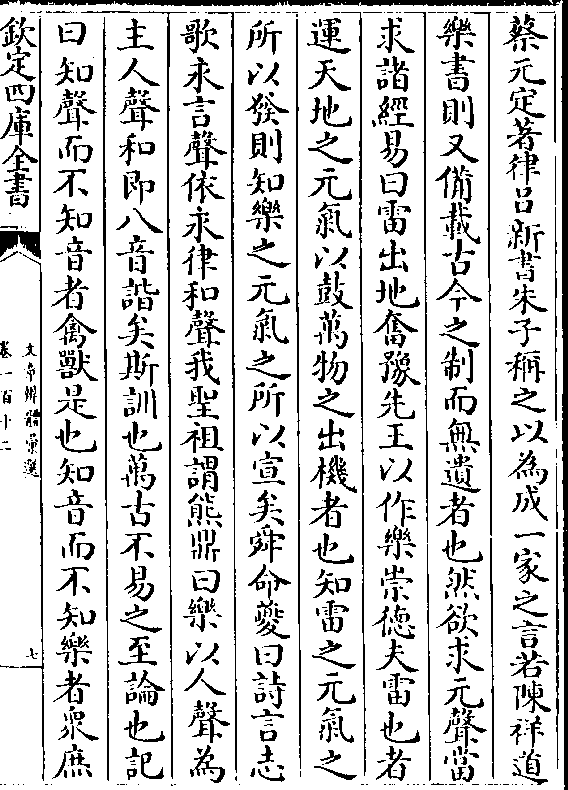 蔡元定著律吕新書朱子稱之以為成一家之言若陳祥道
樂書則又備載古今之制而無遺者也然欲求元聲當
求諸經易曰雷出地奮豫先王以作樂崇德夫雷也者
運天地之元氣以鼓萬物之出機者也知雷之元氣之
所以發則知樂之元氣之所以宣矣舜命夔曰詩言志
歌永言聲依永律和聲我聖祖謂熊鼎曰樂以人聲為
主人聲和即八音諧矣斯訓也萬古不易之至論也記
曰知聲而不知音者禽獸是也知音而不知樂者衆庶
欽定四庫全書
文章辨體彙選
卷一百十二
七